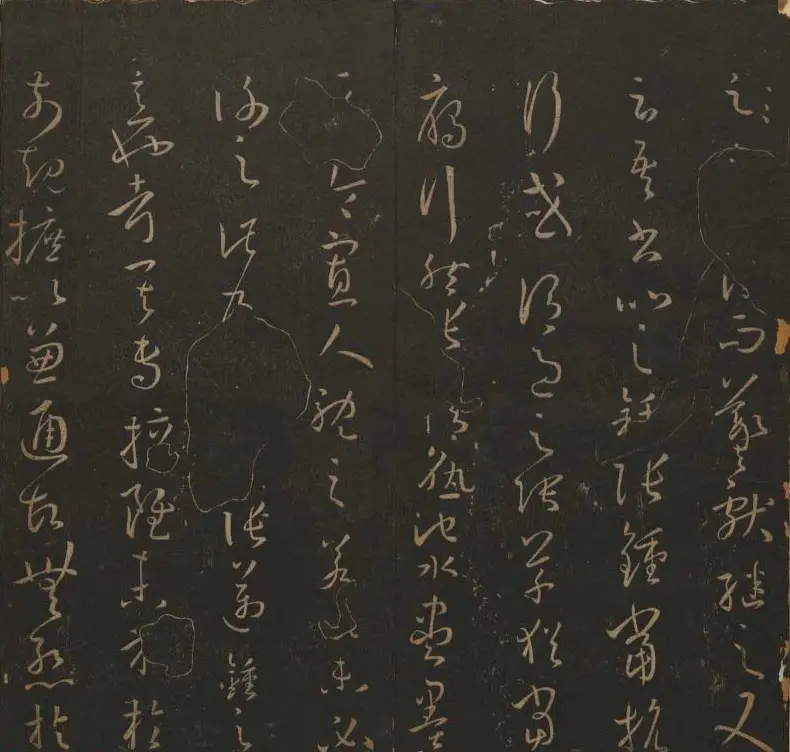 云而羲獻繼之又
云吾書比之鍾張鍾當抗
行或謂過之張草猶當
鴈行然張精熟池水盡墨
令寡人耽之若此未必
謝之此乃張邁鍾之
意也考其專擅雖未果於
前規摭以兼通故無慚於